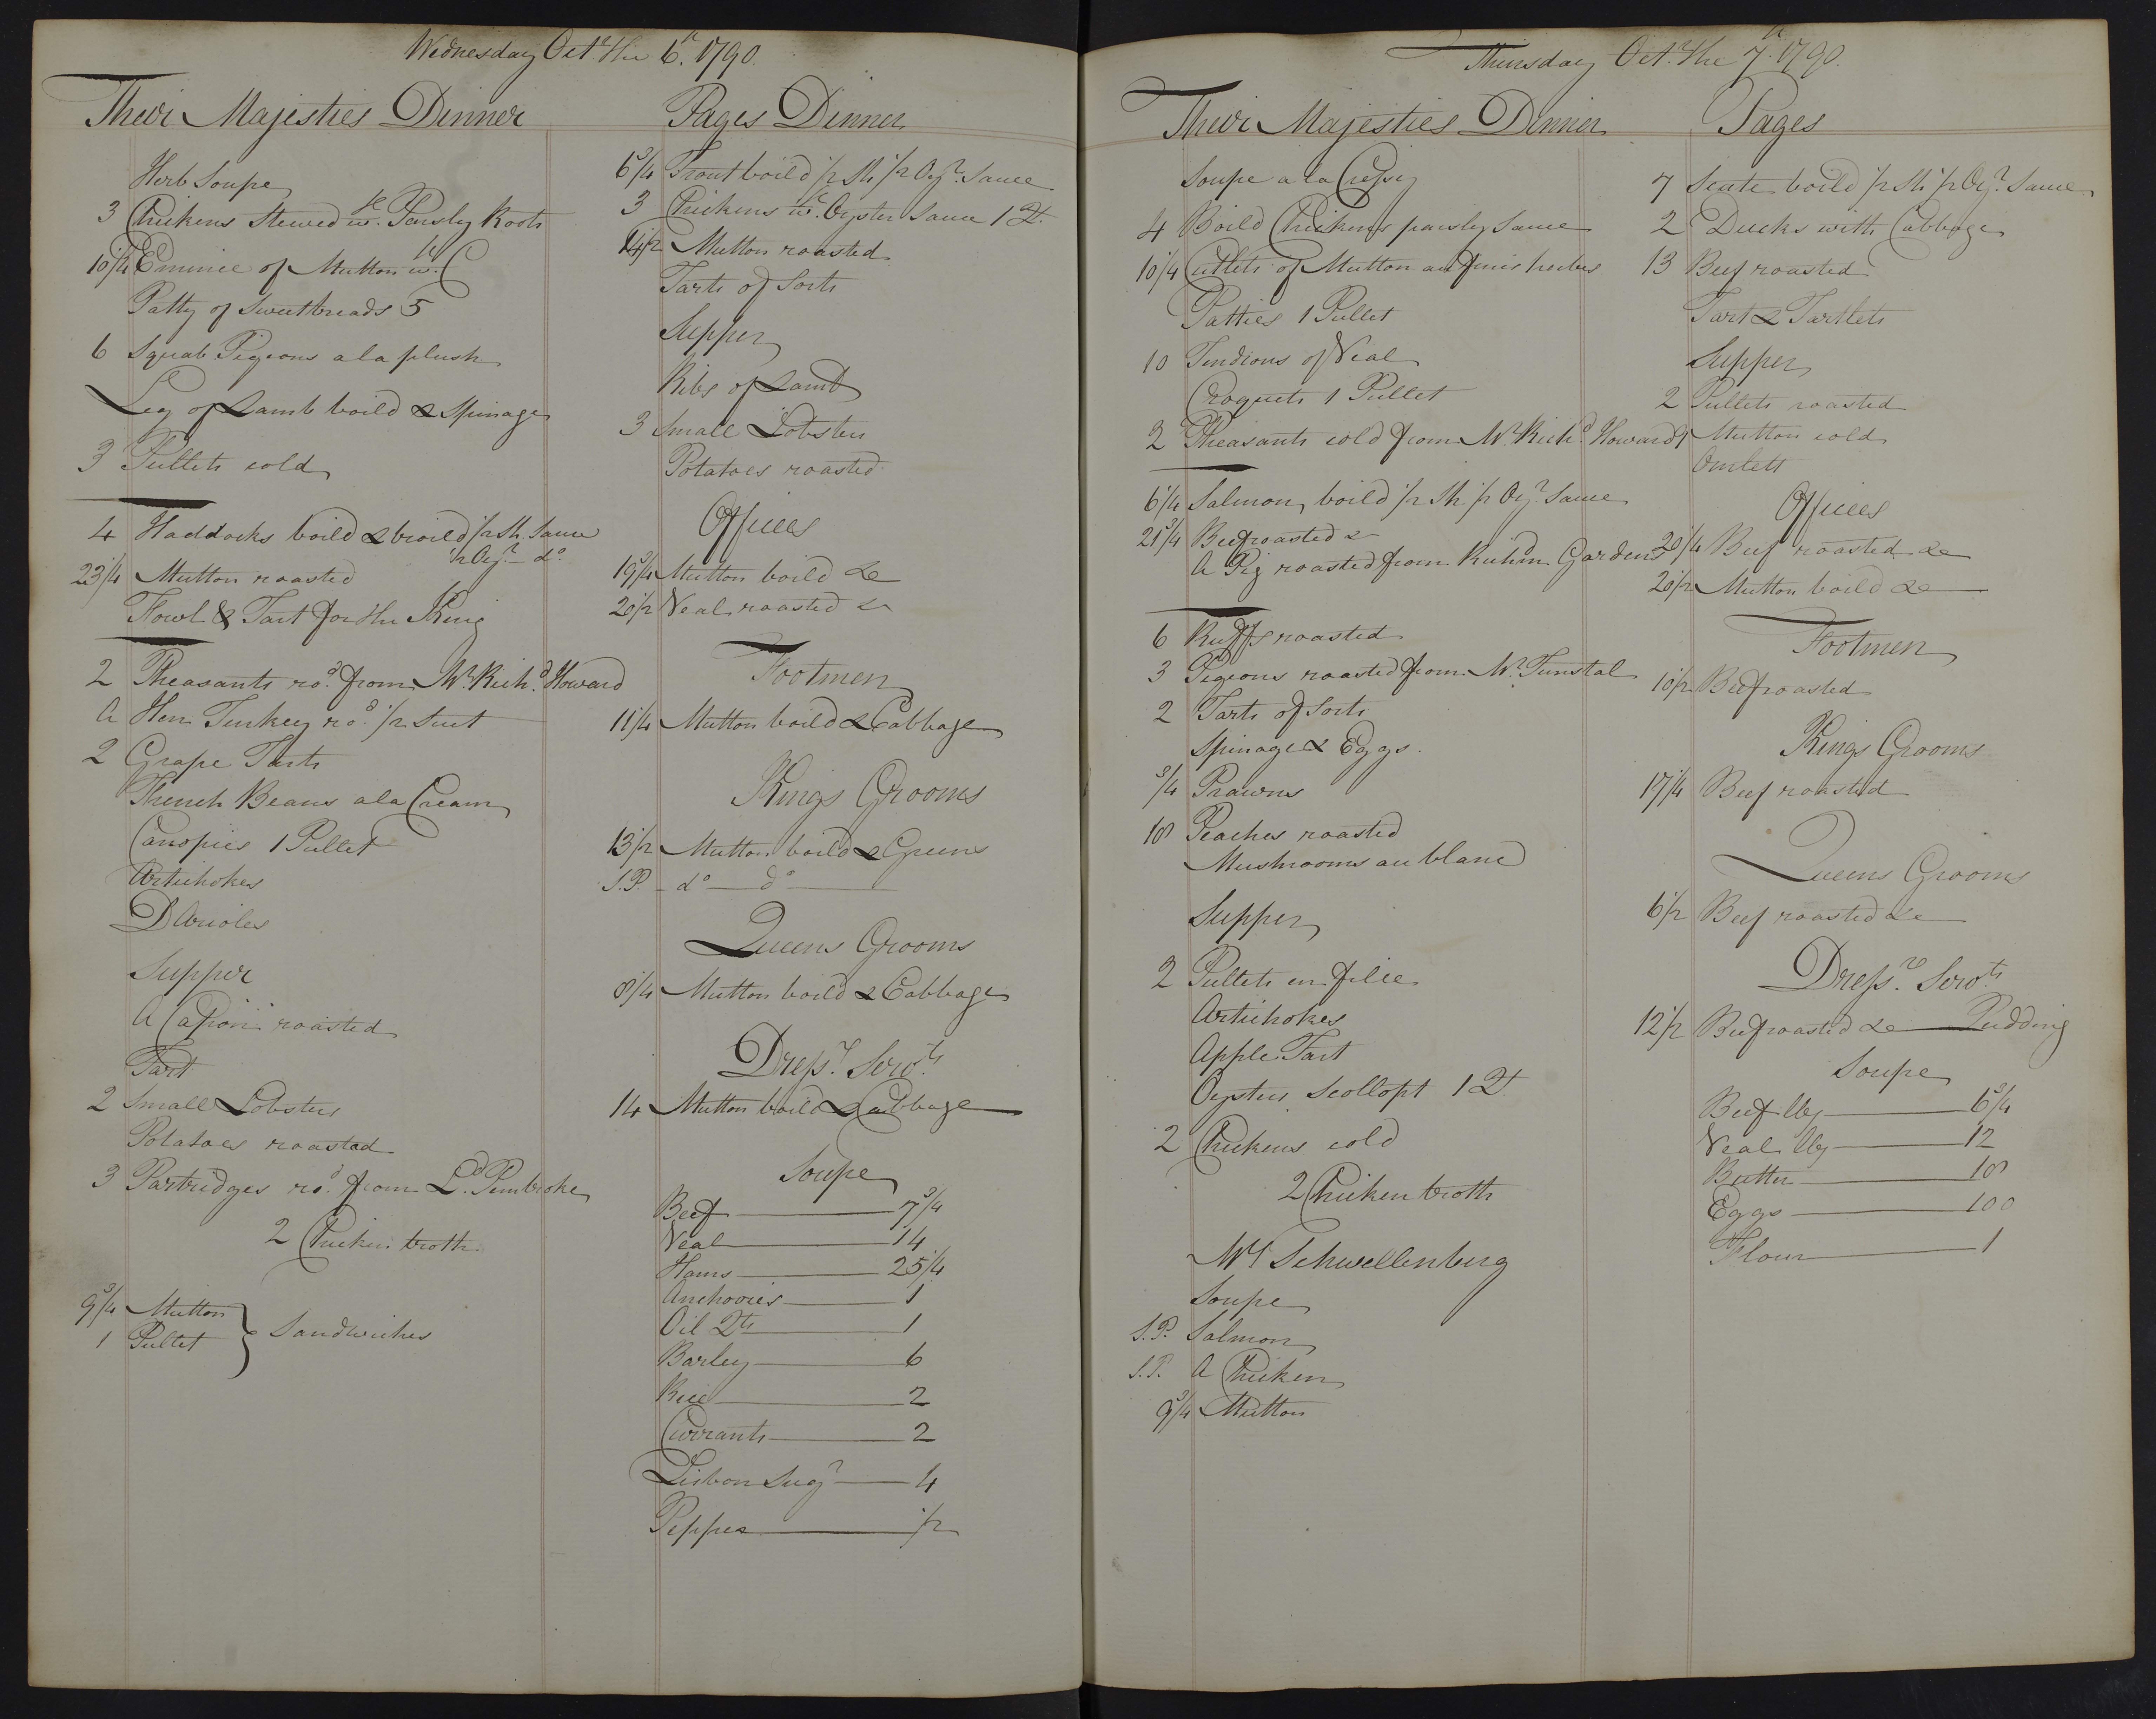 Wednesday Octr. the 6th. 1790.
Their Majesties Dinner
Herb Soupe
3 Chickens Stewed wth. Parsley Roots
10 1/4 Emince of Mutton wth. C
Patty of Sweetbreads 5
6 Squab Pigeons a la plush
Leg of Lamb boild & Spinage
3 Pullets cold
4 Haddocks boild & broild 1/2 Sh. Sauce
1/2 Oyr. do.
23 1/4 Mutton roasted
Fowl & Tart for the King
2 Pheasants rod. from Mr. Richd. Howard
A Hen Turkey rod. 1/2 Suet
2 Grape Tarts
French Beans a la Cream
Canopies 1 Pullet
Artichokes
D'Arioles
Supper
A Capon roasted
Tart
2 Small Lobsters
Potatoes roasted
3 Partridges rod. from Ld. Pembroke
2 Chicken broth
9 3/4 Mutton
1 Pullet } Sandwiches
Pages Dinner
6 3/4 Trout boild 1/2 Sh. 1/2 Oyr. Sauce
3 Chickens wth. Oyster Sauce 1 Qt.
14 1/2 Mutton roasted
Tarts of Sorts
Supper
Ribs of Lamb
3 Small Lobsters
Potatoes roasted
Offices
19 3/4 Mutton boild &c
20 1/2 Veal roasted &c
Footmen
11 1/4 Mutton boild & Cabbage
Kings Grooms
13 1/2 Mutton boild & Greens
S.P. do do
Queens Grooms
8 1/4 Mutton boild & Cabbage
Dressr. Servts.
14 Mutton boild & Cabbage
Soupe
Beef 7 3/4
Veal 14
Hams 25 1/4
Anchovies 1
Oil Qts 1
Barley 6
Rice 2
Currants 2
Lisbon Sugr 4
Pepper 1/2
Thursday Octr. the 7th. 1790.
Their Majesties Dinner
Soupe a la Cressy
4 Boild Chickens parsley Sauce
10 1/4 Cutlets of Mutton au finis herbes
Patties 1 Pullet
10 Tendrons of Veal
Croquets 1 Pullet
2 Pheasants cold from Mr. Richd. Howard
6 1/4 Salmon boild 1/2 Sh. 1/2 Oyr. Sauce
21 3/4 Beef roasted &c
A Pig roasted from Richm. Gardens
6 Ruffs roasted
3 Pigeons roasted from Mr. Tunstal
2 Tarts of Sorts
Spinage & Eggs.
3/4 Prawns
18 Peaches roasted
Mushrooms au blanc
Supper
2 Pullets en filee
Artichokes
Apple Tart
Oysters Scollopt 1 Qt.
2 Chickens cold
2 Chicken broth
Mrs Schwellenberg
Soupe
S.P. Salmon
S.P. A Chicken
9 3/4 Mutton
Pages
7 Scate boild 1/2 Sh. 1/2 Oyr. Sauce
2 Ducks with Cabbage
13 Beef roasted
Tart & Tartlets
Supper
2 Pullets roasted
Mutton cold
Omlett
Offices
20 1/4 Beef roasted &c
20 1/2 Mutton boild &c
Footmen
10 1/2 Beef roasted
Kings Grooms
17 1/4 Beef roasted
Queens Grooms
6 1/2 Beef roasted &c
Dressr. Servts.
12 1/2 Beef roasted &c Pudding
Soupe
Beef lleg 6 3/4
Veal lleg 12
Butter 18
Eggs 100
Flour 1